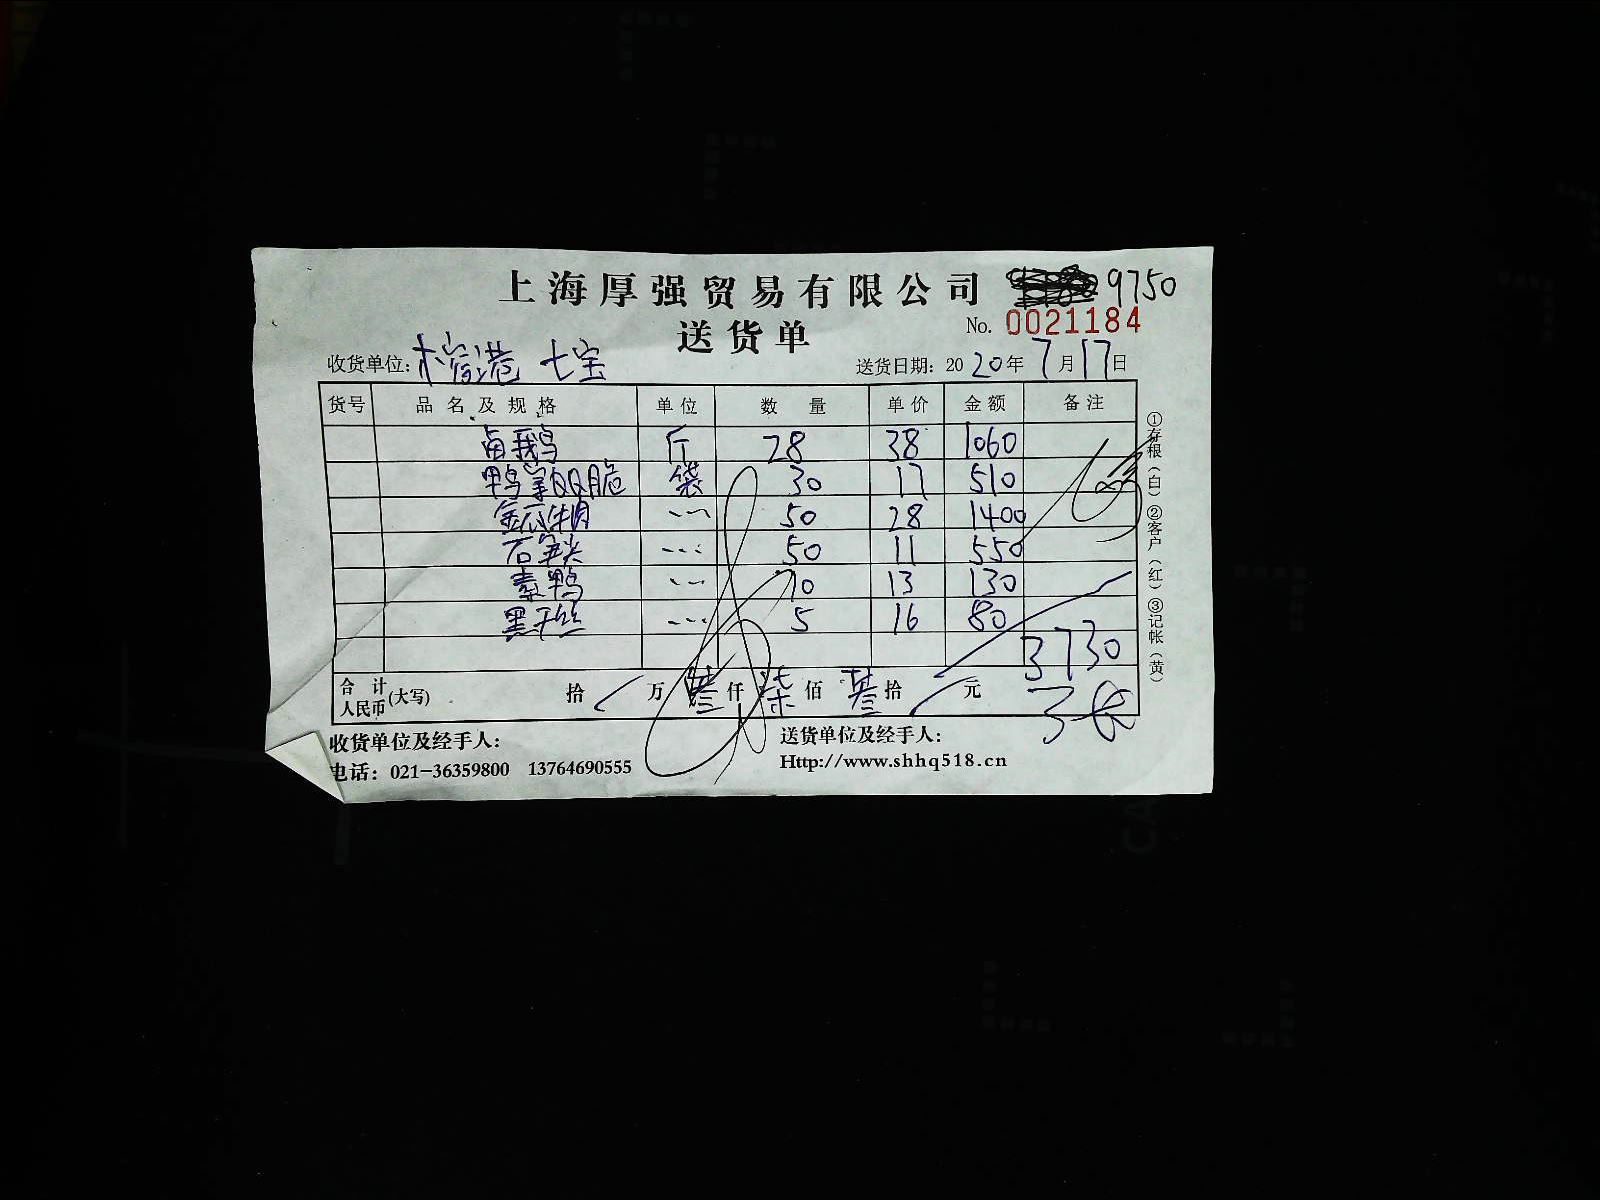 上海厚强贸易有限公司 9750
送货单 No. 0021184
收货单位: 七宝 送货日期: 2020年7月17日
货号 品名及规格 单位 数量 单价 金额 备注
卤鹅 斤 28 38 1060
鸭掌QQ脆 袋 30 17 510
金瓜牛肉 50 28 1400
石笋尖 50 11 550
素鸭 10 13 130
黑干丝 5 16 80
3730
合计人民币(大写) 拾 万 叁仟 柒佰 叁拾 元
3张
收货单位及经手人: 送货单位及经手人:
电话: 021-36359800 13764690555 Http://www.shhq518.cn
①存根(白)②客户(红)③记帐(黄)